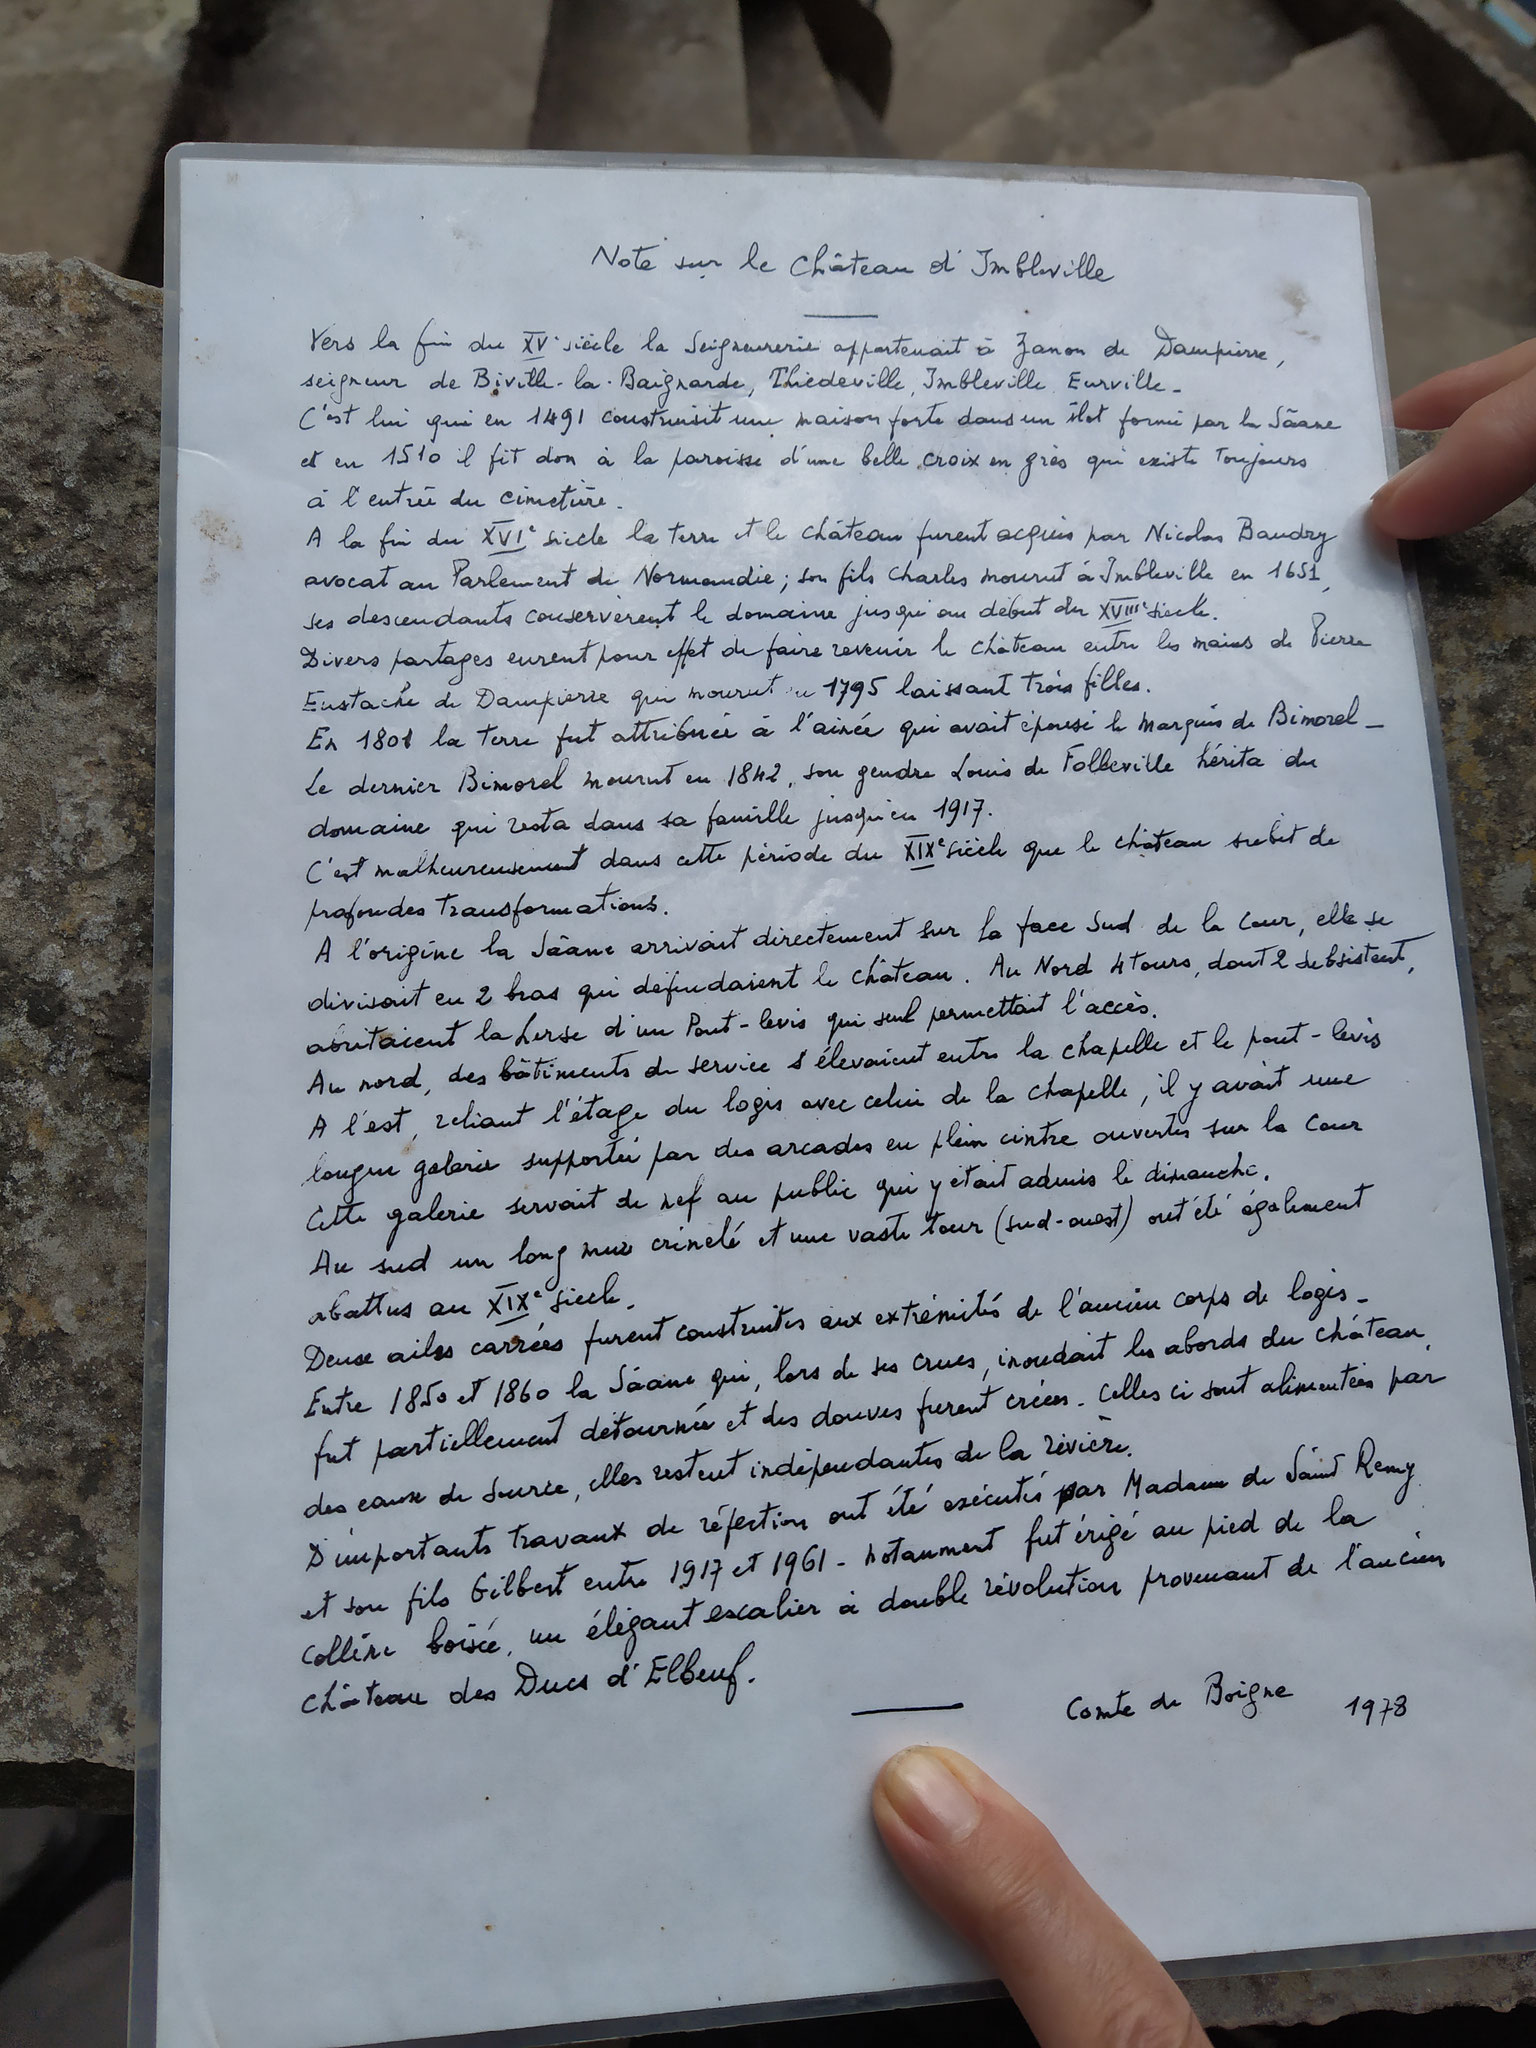 Note sur le Château d'Imbleville
Vers la fin du XVe siècle la Seigneurerie appartenait à Zanon de Dampierre,
seigneur de Biville-la-Baignarde, Thiedeville, Imbleville, Eurville_
C'est lui qui en 1491 construisit une maison forte dans un îlot formé par la Sâane
et en 1510 il fit don à la paroisse d'une belle croix en grès qui existe toujours
à l'entrée du cimetière.
A la fin du XVIe siècle la terre et le château furent acquis par Nicolas Baudry
avocat au Parlement de Normandie; son fils Charles mourut à Imbleville en 1651,
ses descendants conservèrent le domaine jusqu'au début du XVIIIe siècle.
Divers partages eurent pour effet de faire revenir le château entre les mains de Pierre
Eustache de Dampierre qui mourut en 1795 laissant trois filles.
En 1801 la terre fut attribuée à l'ainée qui avait épousé le Marquis de Bimorel_
Le dernier Bimorel mourut en 1842, son gendre Louis de Folleville hérita du
domaine qui resta dans sa famille jusqu'en 1917.
C'est malheureusement dans cette période du XIXe siècle que le château subit de
profondes transformations.
A l'origine la Sâane arrivait directement sur la face Sud de la Cour, elle se
divisait en 2 bras qui défendaient le château. Au Nord 4 tours, dont 2 subsistent,
abritaient la herse d'un Pont-levis qui seul permettait l'accès.
Au nord, des bâtiments de service s'élevaient entre la chapelle et le pont-levis
A l'est, reliant l'étage du logis avec celui de la chapelle, il y avait une
longue galerie supportée par des arcades en plein cintre ouvertes sur la Cour
Cette galerie servait de nef au public qui y était admis le dimanche.
Au sud un long mur crénelé et une vaste tour (sud-ouest) ont été également
abattus au XIXe siècle.
Deux ailes carrées furent construites aux extrémités de l'ancien corps de logis_
Entre 1850 et 1860 la Sâane qui, lors de ses crues, inondait les abords du château,
fut partiellement détournée et des douves furent créées. Celles ci sont alimentées par
des eaux de source, elles restent indépendantes de la rivière.
D'importants travaux de réfection ont été exécutés par Madame de Saint Remy
et son fils Gilbert entre 1917 et 1961 - notamment fut érigé au pied de la
Colline boisée, un élégant escalier à double révolution provenant de l'ancien
château des Ducs d'Elbeuf.
Comte de Boigne 1978